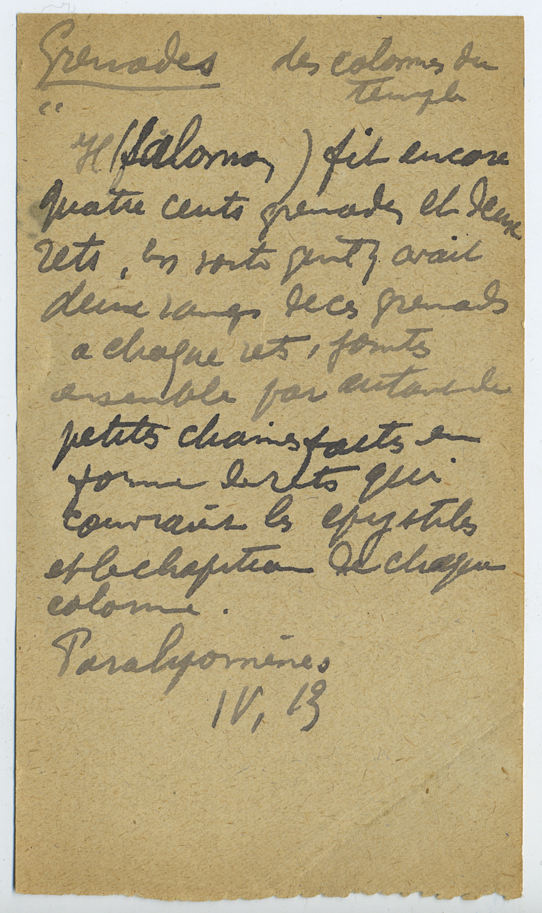 Grenades des colonnes du
temple
"
Il (Salomon) fit encore
quatre cents grenades et deux
rets, en sorte qu'il y avait
deux rangs de ces grenades
a chaque rets, jointes
ensemble par
petits chaines faits en
forme de rets qui
couvraient les epystiles
et le chapiteau de chaque
colonne.
Paralipomènes
IV, 13